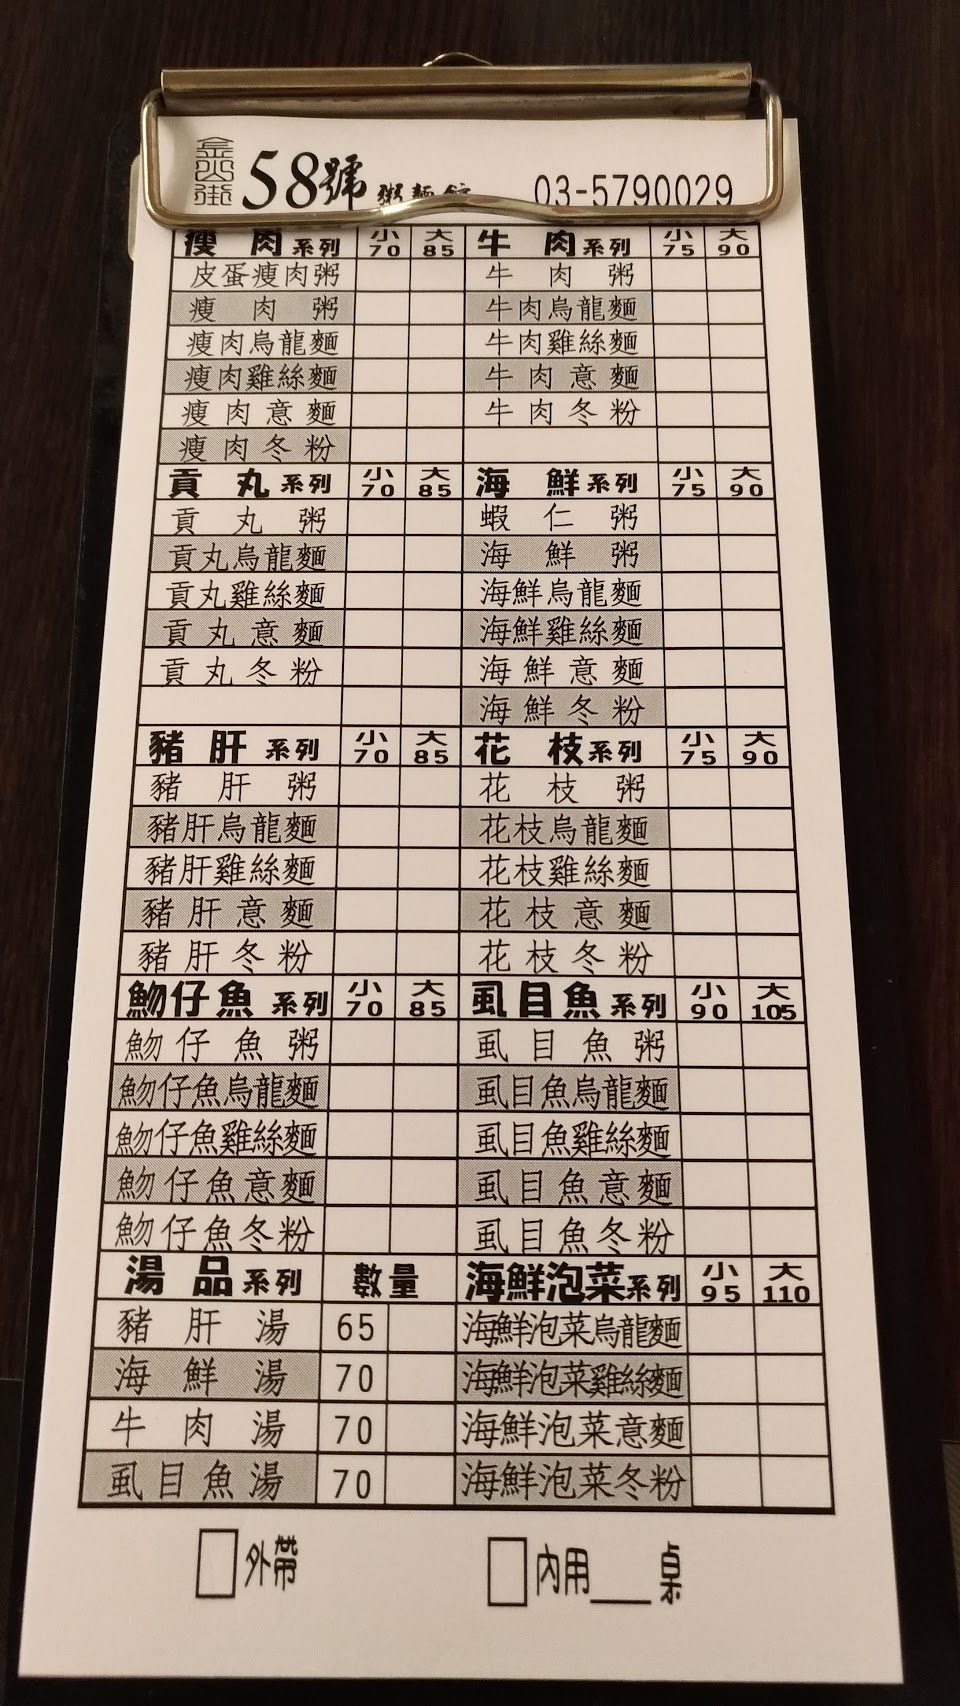 金山街 58號 粥麵館 03-5790029
瘦肉系列 小70 大85 牛肉系列 小75 大90
皮蛋瘦肉粥 牛肉粥
瘦肉粥 牛肉烏龍麵
瘦肉烏龍麵 牛肉雞絲麵
瘦肉雞絲麵 牛肉意麵
瘦肉意麵 牛肉冬粉
瘦肉冬粉
貢丸系列 小70 大85 海鮮系列 小75 大90
貢丸粥 蝦仁粥
貢丸烏龍麵 海鮮粥
貢丸雞絲麵 海鮮烏龍麵
貢丸意麵 海鮮雞絲麵
貢丸冬粉 海鮮意麵
海鮮冬粉
豬肝系列 小70 大85 花枝系列 小75 大90
豬肝粥 花枝粥
豬肝烏龍麵 花枝烏龍麵
豬肝雞絲麵 花枝雞絲麵
豬肝意麵 花枝意麵
豬肝冬粉 花枝冬粉
魩仔魚系列 小70 大85 虱目魚系列 小90 大105
魩仔魚粥 虱目魚粥
魩仔魚烏龍麵 虱目魚烏龍麵
魩仔魚雞絲麵 虱目魚雞絲麵
魩仔魚意麵 虱目魚意麵
魩仔魚冬粉 虱目魚冬粉
湯品系列 數量 海鮮泡菜系列 小95 大110
豬肝湯 65 海鮮泡菜烏龍麵
海鮮湯 70 海鮮泡菜雞絲麵
牛肉湯 70 海鮮泡菜意麵
虱目魚湯 70 海鮮泡菜冬粉
外帶 內用___桌